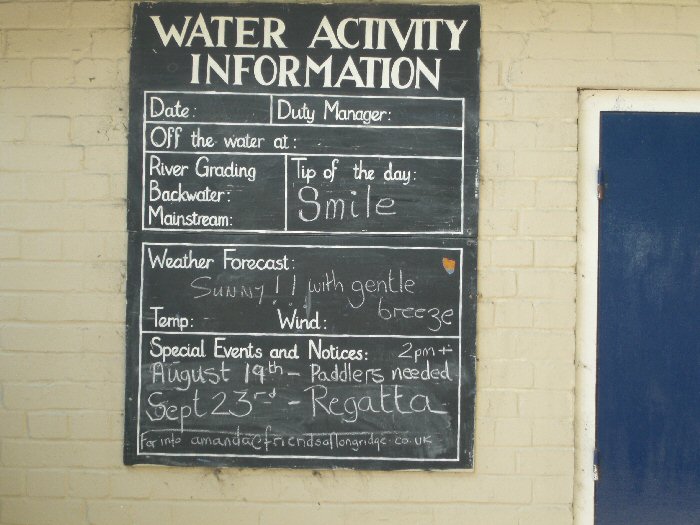 WATER ACTIVITY
INFORMATION
Date: Duty Manager:
Off the water at:
River Grading
Backwater:
Mainstream:
Tip of the day:
Smile
Weather Forecast:
SUNNY!! with gentle
breeze
Temp: Wind:
Special Events and Notices: 2pm+
August 19th - Paddlers needed
Sept 23rd - Regatta
For info amanda@friendsoflongridge.co.uk